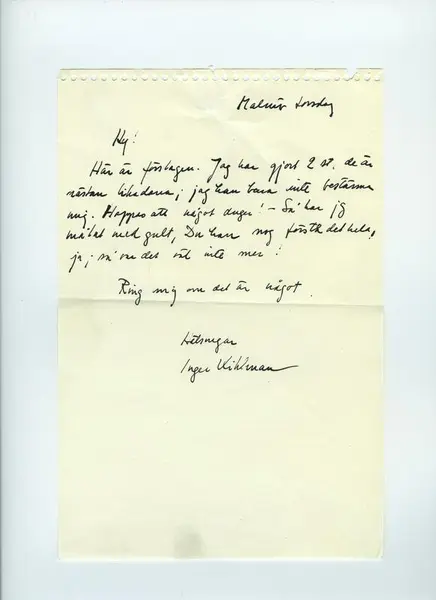 Malmö torsdag
Hej!
Här är förslagen. Jag har gjort 2 st. de är
nästan likadana; jag kan bara inte bestämma
mig. Hoppas att något duger! – Så har jag
målat med gult, Du kan nog förstå det hela,
ja, så var det väl inte mer!
Ring mig om det är något.
Hälsningar
Inger Kihlman